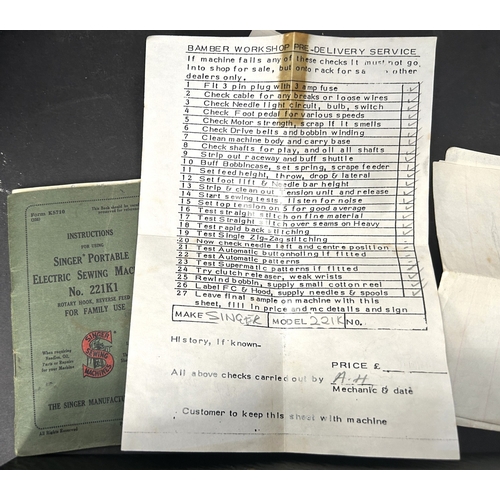 BAMBER WORKSHOP PRE-DELIVERY SERVICE
If machine fails any of these checks it must not go.
Into shop for sale, but onto rack for sa other
dealers only.
1 Fit 3 pin plug with 3 amp fuse
2 Check cable for any breaks or loose wires
3 Check Needle light circuit, bulb, switch
4 Check Foot pedal for various speeds
5 Check Motor strength, scrap if it smells
6 Check Drive belts and bobbin winding
7 Clean machine body and carry base
8 Check shafts for play, and oil all shafts
9 Strip out raceway and buff shuttle
10 Buff Bobbincase, set spring, scrape feeder
11 Set feed height, throw, drop & lateral
12 Set foot lift & Needle bar height
13 Strip & clean out tension unit and release
14 Start sewing tests, listen for noise
15 Set top tension on 5 for good average
16 Test straight stitch on fine material
17 Test straight stitch over seams on Heavy
18 Test rapid back stitching
19 Test Single Zig-Zag stitching
20 Now check needle left and centre position
21 Test Automatic buttonholing if fitted
22 Test Automatic patterns
23 Test Supermatic patterns if fitted
24 Try clutch releaser, weak wrists
25 Rewind bobbin, supply small cotton reel
26 Label FC & Hood, supply needles & spools
27 Leave final sample on machine with this
sheet, fill in price and mc details and sign
MAKE SINGER MODEL 221K NO.
History, if known-
PRICE £
All above checks carried out by A.H
Mechanic & date
Customer to keep this sheet with machine
Form K5718
INSTRUCTIONS
FOR USING
SINGER PORTABLE
ELECTRIC SEWING MAC
No. 221K1
ROTARY HOOK, REVERSE FEED
FOR FAMILY USE
SINGER
SEWING
MACHINES
When requiring
Needles, Oil,
Parts or Repairs
for your Machine
THE SINGER MANUFACTUR
All Rights Reserved